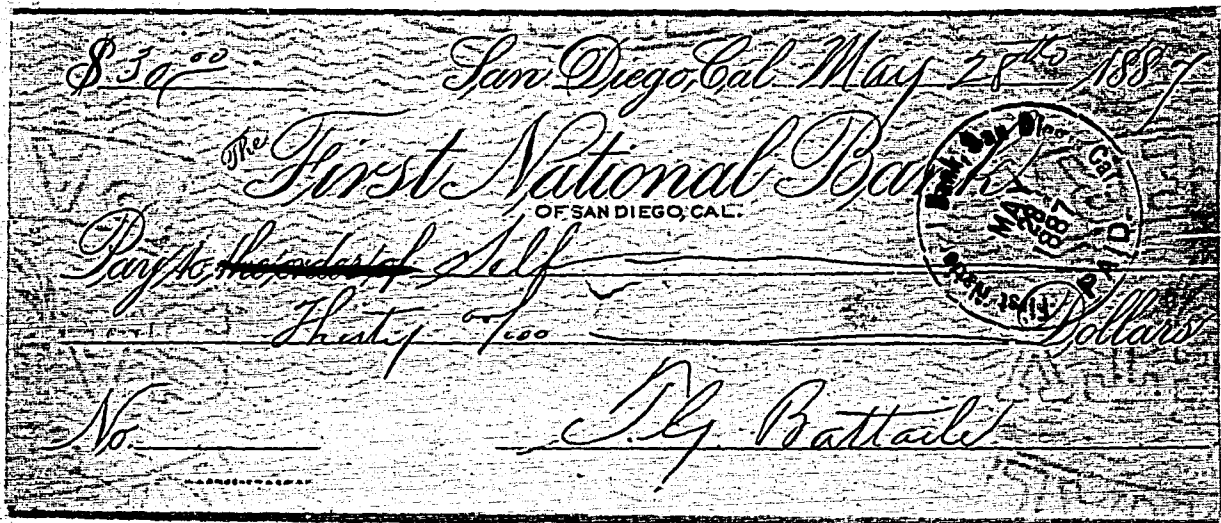 $ 30.00 San Diego, Cal. May 28th 1887
The First National Bank
OF SAN DIEGO, CAL.
Pay to the order of Self
Thirty 00/100 Dollars
No. T. G. Battaile
First National Bank, San Diego, Cal.
PAID
MAY
28
1887